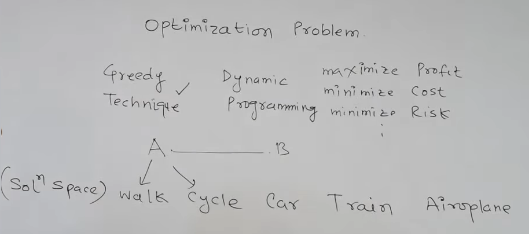 Optimization Problem.
Greedy Technique ✓
Dynamic Programming
maximize Profit
minimize Cost
minimize Risk
⋮
A B
(Solⁿ Space) Walk Cycle Car Train Airoplane